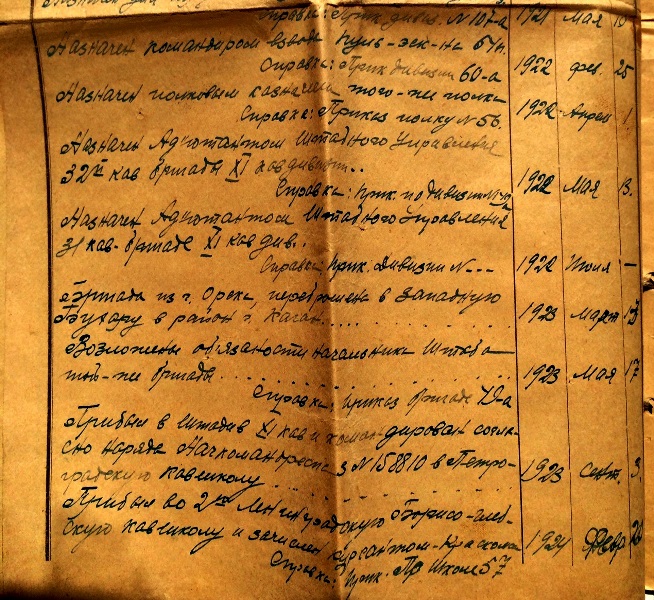 Справка: Прик. дивиз. N 107-а 1921 Мая 10
Назначен командиром взвода пулем-эск-на 61п.
Справка: Прик. дивизии 60-а 1922 фев. 25
Назначен полковым казначеем того-же полка
Справка: Приказ полку N 56. 1922 Апрел 1.
Назначен Адъютантом Штабного Управления
32й кав бригады XI кавдивиз..
Справка: прик. по дивизии 1922 Мая 13.
Назначен Адъютантом Штабного Управления
31 кав-бригаде XI кав див.
Справка, прик. Дивизии N--- 1922 Июля —
Бригада из г. Орска, переброшена в Западную
Бухару в район г. Каган..... 1923 Март
Возложены обязаности начальника Штаба
той-же бригады. 1923 Мая 17
Справка, приказ бригаде 79-а
Прибыл в штадив XI кав и командирован согла-
сно наряда N 158810 в Петро-
градскую кавшколу 1923 сент. 3.
Прибыл во 2ую Ленинградскую Борисо-глеб-
скую кавшколу и зачислен курсантом-краскома 1924 Февр
Справка: Прик. По Школе 57